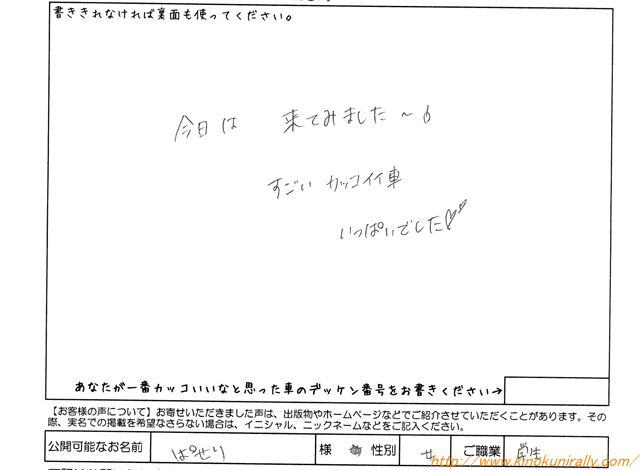 書ききれなければ裏面も使ってください。
今日は 来てみました～♪
すごい カッコイイ車
いっぱいでした♡♡
あなたが一番カッコいいなと思った車のデッケン番号をお書きください→
【お客様の声について】お寄せいただきました声は、出版物やホームページなどでご紹介させていただくことがあります。その
際、実名での掲載を希望なさらない場合は、イニシャル、ニックネームなどをご記入ください。
公開可能なお名前 ぱせり 様 性別 女 ご職業 学生
http://www.kinokunirally.com/